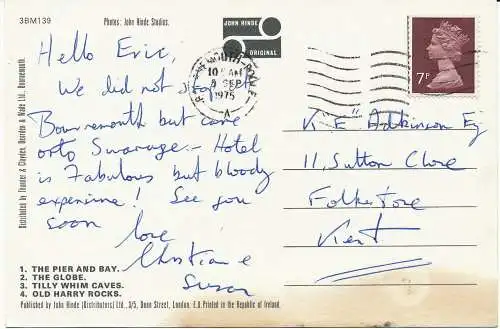 3BM139
Photos: John Hinde Studios.
JOHN HINDE
ORIGINAL
Hello Eric,
We did not stop at
Bournemouth but came
onto Swanage – Hotel
is Fabulous but bloody
expensive! See you
soon
love
Christian e
Susan
10 AM
9 SEP
1975
A
7P
K "E" Adkinson Eq
11, Sutton Close
Folkestone
Kent
1. THE PIER AND BAY.
2. THE GLOBE.
3. TILLY WHIM CAVES.
4. OLD HARRY ROCKS.
Published by John Hinde (Distributors) Ltd., 3/5, Dean Street, London. E.D. Printed in the Republic of Ireland.